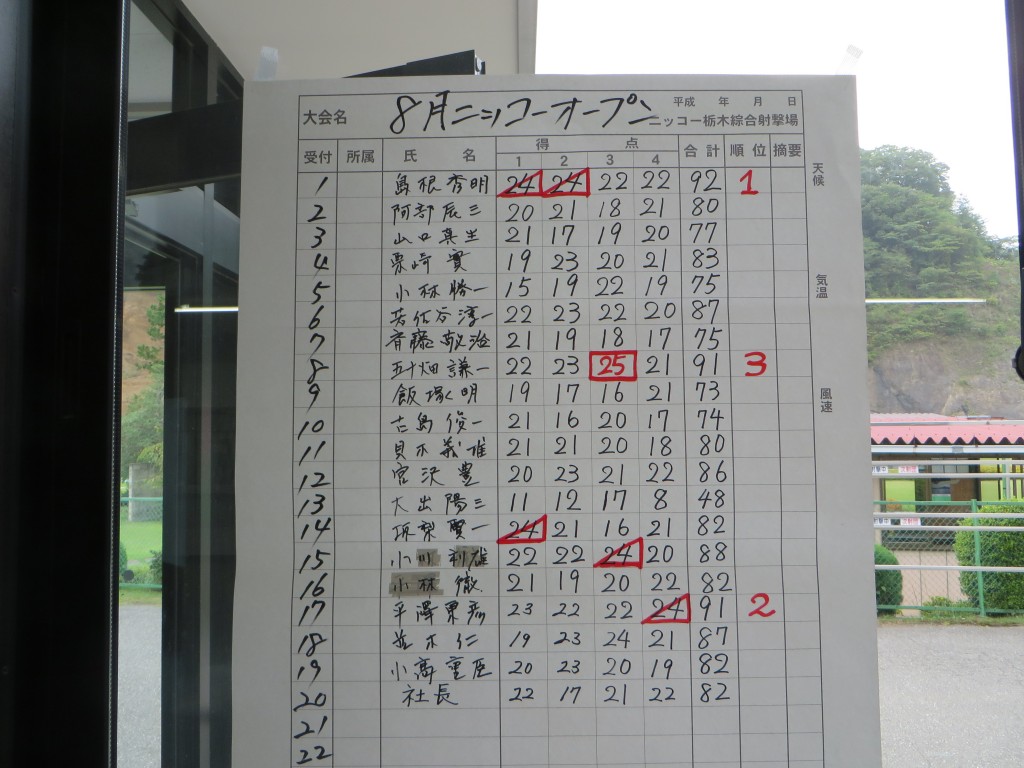 大会名 8月ニッコーオープン 平成 年 月 日
ニッコー栃木綜合射撃場
受付 所属 氏 名 得 点 合計 順位 摘要
1 2 3 4
1 島根秀明 24 24 22 22 92 1
2 阿部辰三 20 21 18 21 80
3 山口真生 21 17 19 20 77
4 栗崎實 19 23 20 21 83
5 小林勝一 15 19 22 19 75
6 若代谷淳一 22 23 22 20 87
7 斉藤敬治 21 19 18 17 75
8 五十畑謙一 22 23 25 21 91 3
9 飯塚明 19 17 16 21 73
10 古島俊一 21 16 20 17 74
11 貝木義雄 21 21 20 18 80
12 宮沢豊 20 23 21 22 86
13 大出陽三 11 12 17 8 48
14 坂梨賢一 24 21 16 21 82
15 小川利雄 22 22 24 20 88
16 小林徹 21 19 20 22 82
17 平澤 彦 23 22 22 24 91 2
18 並木仁 19 23 24 21 87
19 小高重臣 20 23 20 19 82
20 社長 22 17 21 22 82
21
22
天候
気温
風速